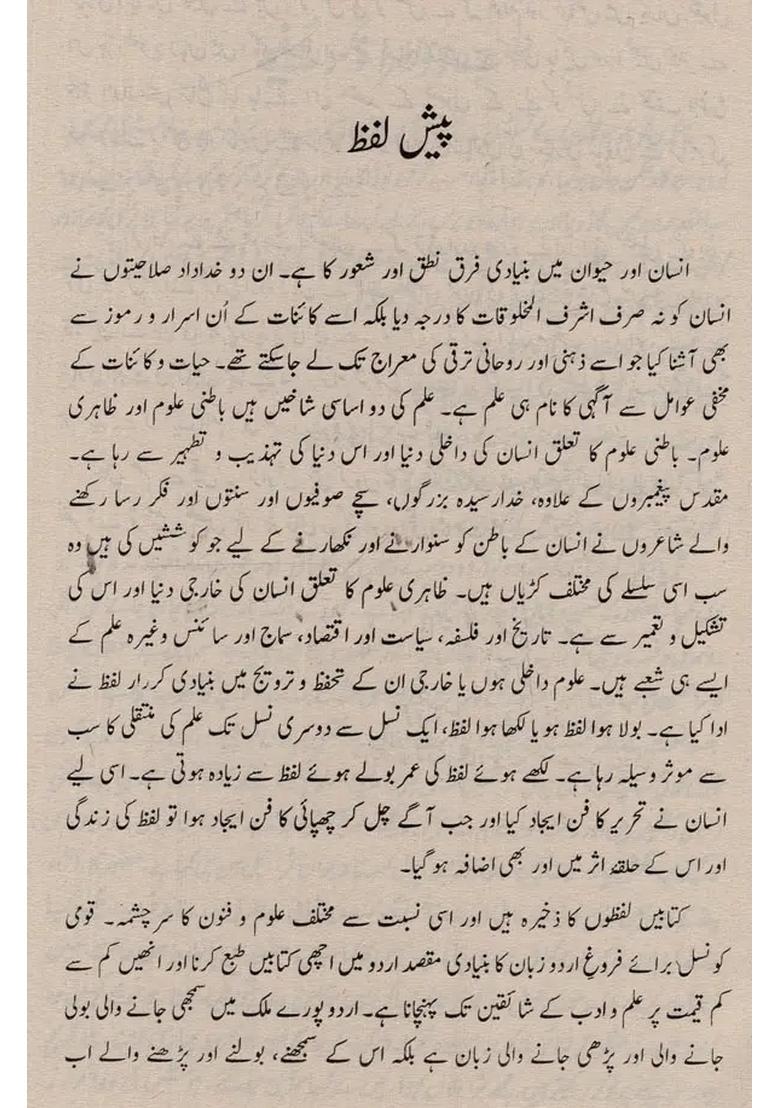 پیش لفظ
انسان اور حیوان میں بنیادی فرق نطق اور شعور کا ہے۔ ان دو خداداد صلاحیتوں نے
انسان کو نہ صرف اشرف المخلوقات کا درجہ دیا بلکہ اسے کائنات کے اُن اسرار و رموز سے
بھی آشنا کیا جو اسے ذہنی اور روحانی ترقی کی معراج تک لے جاسکتے تھے۔ حیات و کائنات کے
مخفی عوامل سے آگہی کا نام ہی علم ہے۔ علم کی دو اساسی شاخیں ہیں باطنی علوم اور ظاہری
علوم۔ باطنی علوم کا تعلق انسان کی داخلی دنیا اور اس دنیا کی تہذیب و تطہیر سے رہا ہے۔
مقدس پیغمبروں کے علاوہ، خدارسیدہ بزرگوں، سچے صوفیوں اور سنتوں اور فکر رسا رکھنے
والے شاعروں نے انسان کے باطن کو سنوارنے اور نکھارنے کے لیے جو کوششیں کی ہیں وہ
سب اسی سلسلے کی مختلف کڑیاں ہیں۔ ظاہری علوم کا تعلق انسان کی خارجی دنیا اور اس کی
تشکیل و تعمیر سے ہے۔ تاریخ اور فلسفہ، سیاست اور اقتصاد، سماج اور سائنس وغیرہ علم کے
ایسے ہی شعبے ہیں۔ علوم داخلی ہوں یا خارجی ان کے تحفظ و ترویج میں بنیادی کردار لفظ نے
ادا کیا ہے۔ بولا ہوا لفظ ہو یا لکھا ہوا لفظ، ایک نسل سے دوسری نسل تک علم کی منتقلی کا سب
سے موثر وسیلہ رہا ہے۔ لکھے ہوئے لفظ کی عمر بولے ہوئے لفظ سے زیادہ ہوتی ہے۔ اسی لیے
انسان نے تحریر کا فن ایجاد کیا اور جب آگے چل کر چھپائی کا فن ایجاد ہوا تو لفظ کی زندگی
اور اس کے حلقۂ اثر میں اور بھی اضافہ ہو گیا۔
کتابیں لفظوں کا ذخیرہ ہیں اور اسی نسبت سے مختلف علوم و فنون کا سرچشمہ۔ قومی
کونسل برائے فروغ اردو زبان کا بنیادی مقصد اردو میں اچھی کتابیں طبع کرنا اور انھیں کم سے
کم قیمت پر علم و ادب کے شائقین تک پہنچانا ہے۔ اردو پورے ملک میں سمجھی جانے والی بولی
جانے والی اور پڑھی جانے والی زبان ہے بلکہ اس کے سمجھنے، بولنے اور پڑھنے والے اب